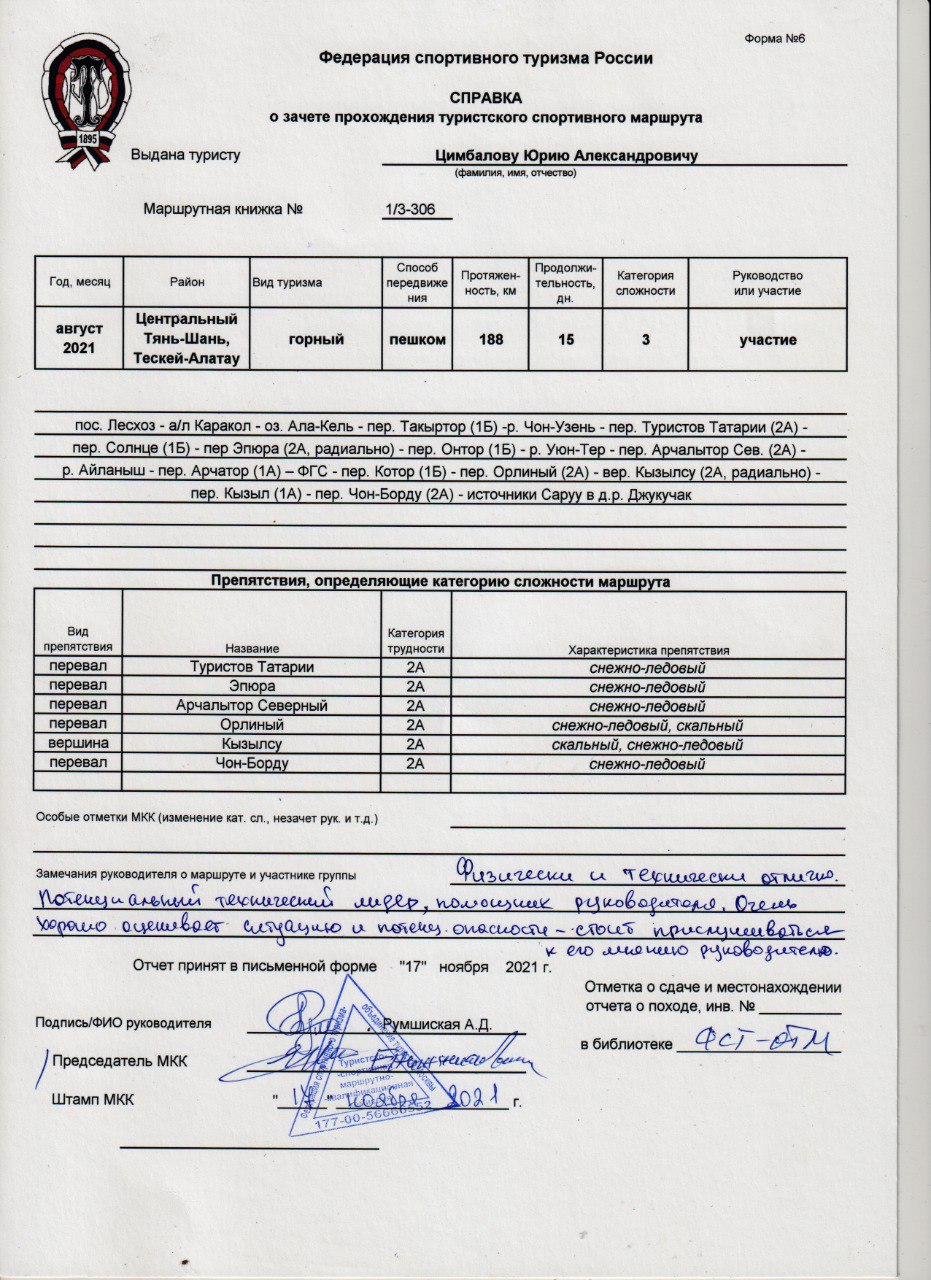 Форма №6
Федерация спортивного туризма России
СПРАВКА
о зачете прохождения туристского спортивного маршрута
1895
Выдана туристу Цимбалову Юрию Александровичу
(фамилия, имя, отчество)
Маршрутная книжка № 1/3-306
Год, месяц Район Вид туризма Способ передвиже ния Протяжен-ность, км Продолжи-тельность, дн. Категория сложности Руководство или участие
август 2021 Центральный Тянь-Шань, Тескей-Алатау горный пешком 188 15 3 участие
пос. Лесхоз - а/л Каракол - оз. Ала-Кель - пер. Такыртор (1Б) -р. Чон-Узень - пер. Туристов Татарии (2А) -
пер. Солнце (1Б) - пер Эпюра (2А, радиально) - пер. Онтор (1Б) - р. Уюн-Тер - пер. Арчалытор Сев. (2А) -
р. Айланыш - пер. Арчатор (1А) – ФГС - пер. Котор (1Б) - пер. Орлиный (2А) - вер. Кызылсу (2А, радиально) -
пер. Кызыл (1А) - пер. Чон-Борду (2А) - источники Саруу в д.р. Джукучак
Препятствия, определяющие категорию сложности маршрута
Вид препятствия Название Категория трудности Характеристика препятствия
перевал Туристов Татарии 2А снежно-ледовый
перевал Эпюра 2А снежно-ледовый
перевал Арчалытор Северный 2А снежно-ледовый
перевал Орлиный 2А снежно-ледовый, скальный
вершина Кызылсу 2А скальный, снежно-ледовый
перевал Чон-Борду 2А снежно-ледовый
Особые отметки МКК (изменение кат. сл., незачет рук. и т.д.)
Замечания руководителя о маршруте и участнике группы Физически и технически отлично.
Потенциальный технический лидер, помощник руководителя. Очень
хорошо оценивает ситуацию и потенц. опасности – стоит прислушиваться
к его мнению руководителю.
Отчет принят в письменной форме "17" ноября 2021 г.
Отметка о сдаче и местонахождении
отчета о походе, инв. №
Подпись/ФИО руководителя Румшиская А.Д.
в библиотеке ФСТ-ОТМ
Председатель МКК
Туристско-
спортивная
маршрутно-
квалификационная
Штамп МКК " " ноября 2021 г.
177-00-56666552